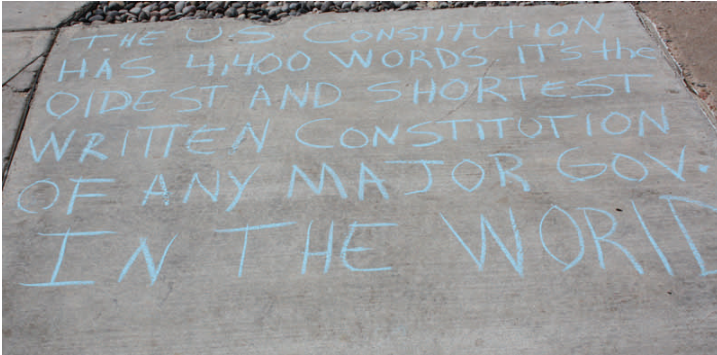 THE US CONSTITUTION
HAS 4,400 WORDS IT'S the
OLDEST AND SHORTEST
WRITTEN CONSTITUTION
OF ANY MAJOR GOV.
IN THE WORLD